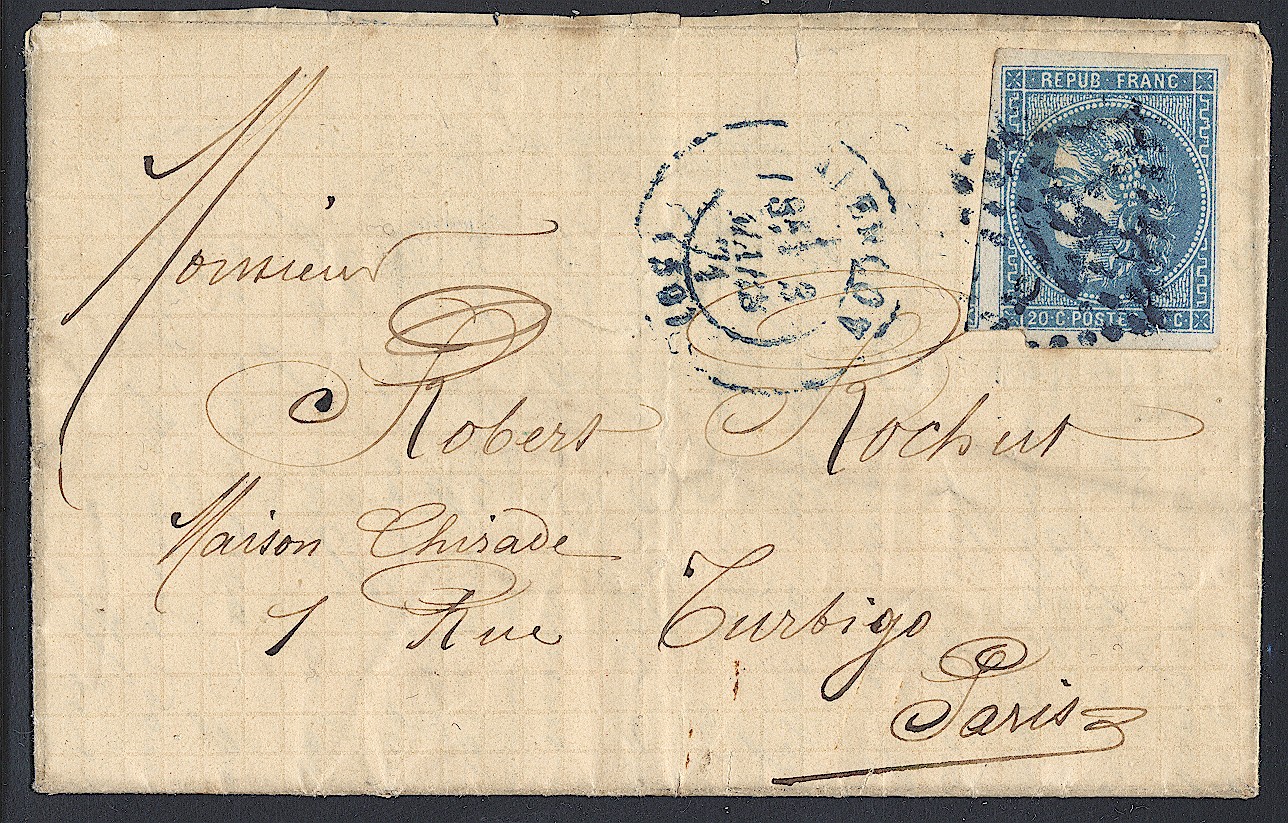 REPUB · FRANC
20 · C · POSTE C
MARS
Monsieur
Robert Rochut
Maison Chirade
1 Rue Turbigo
Paris